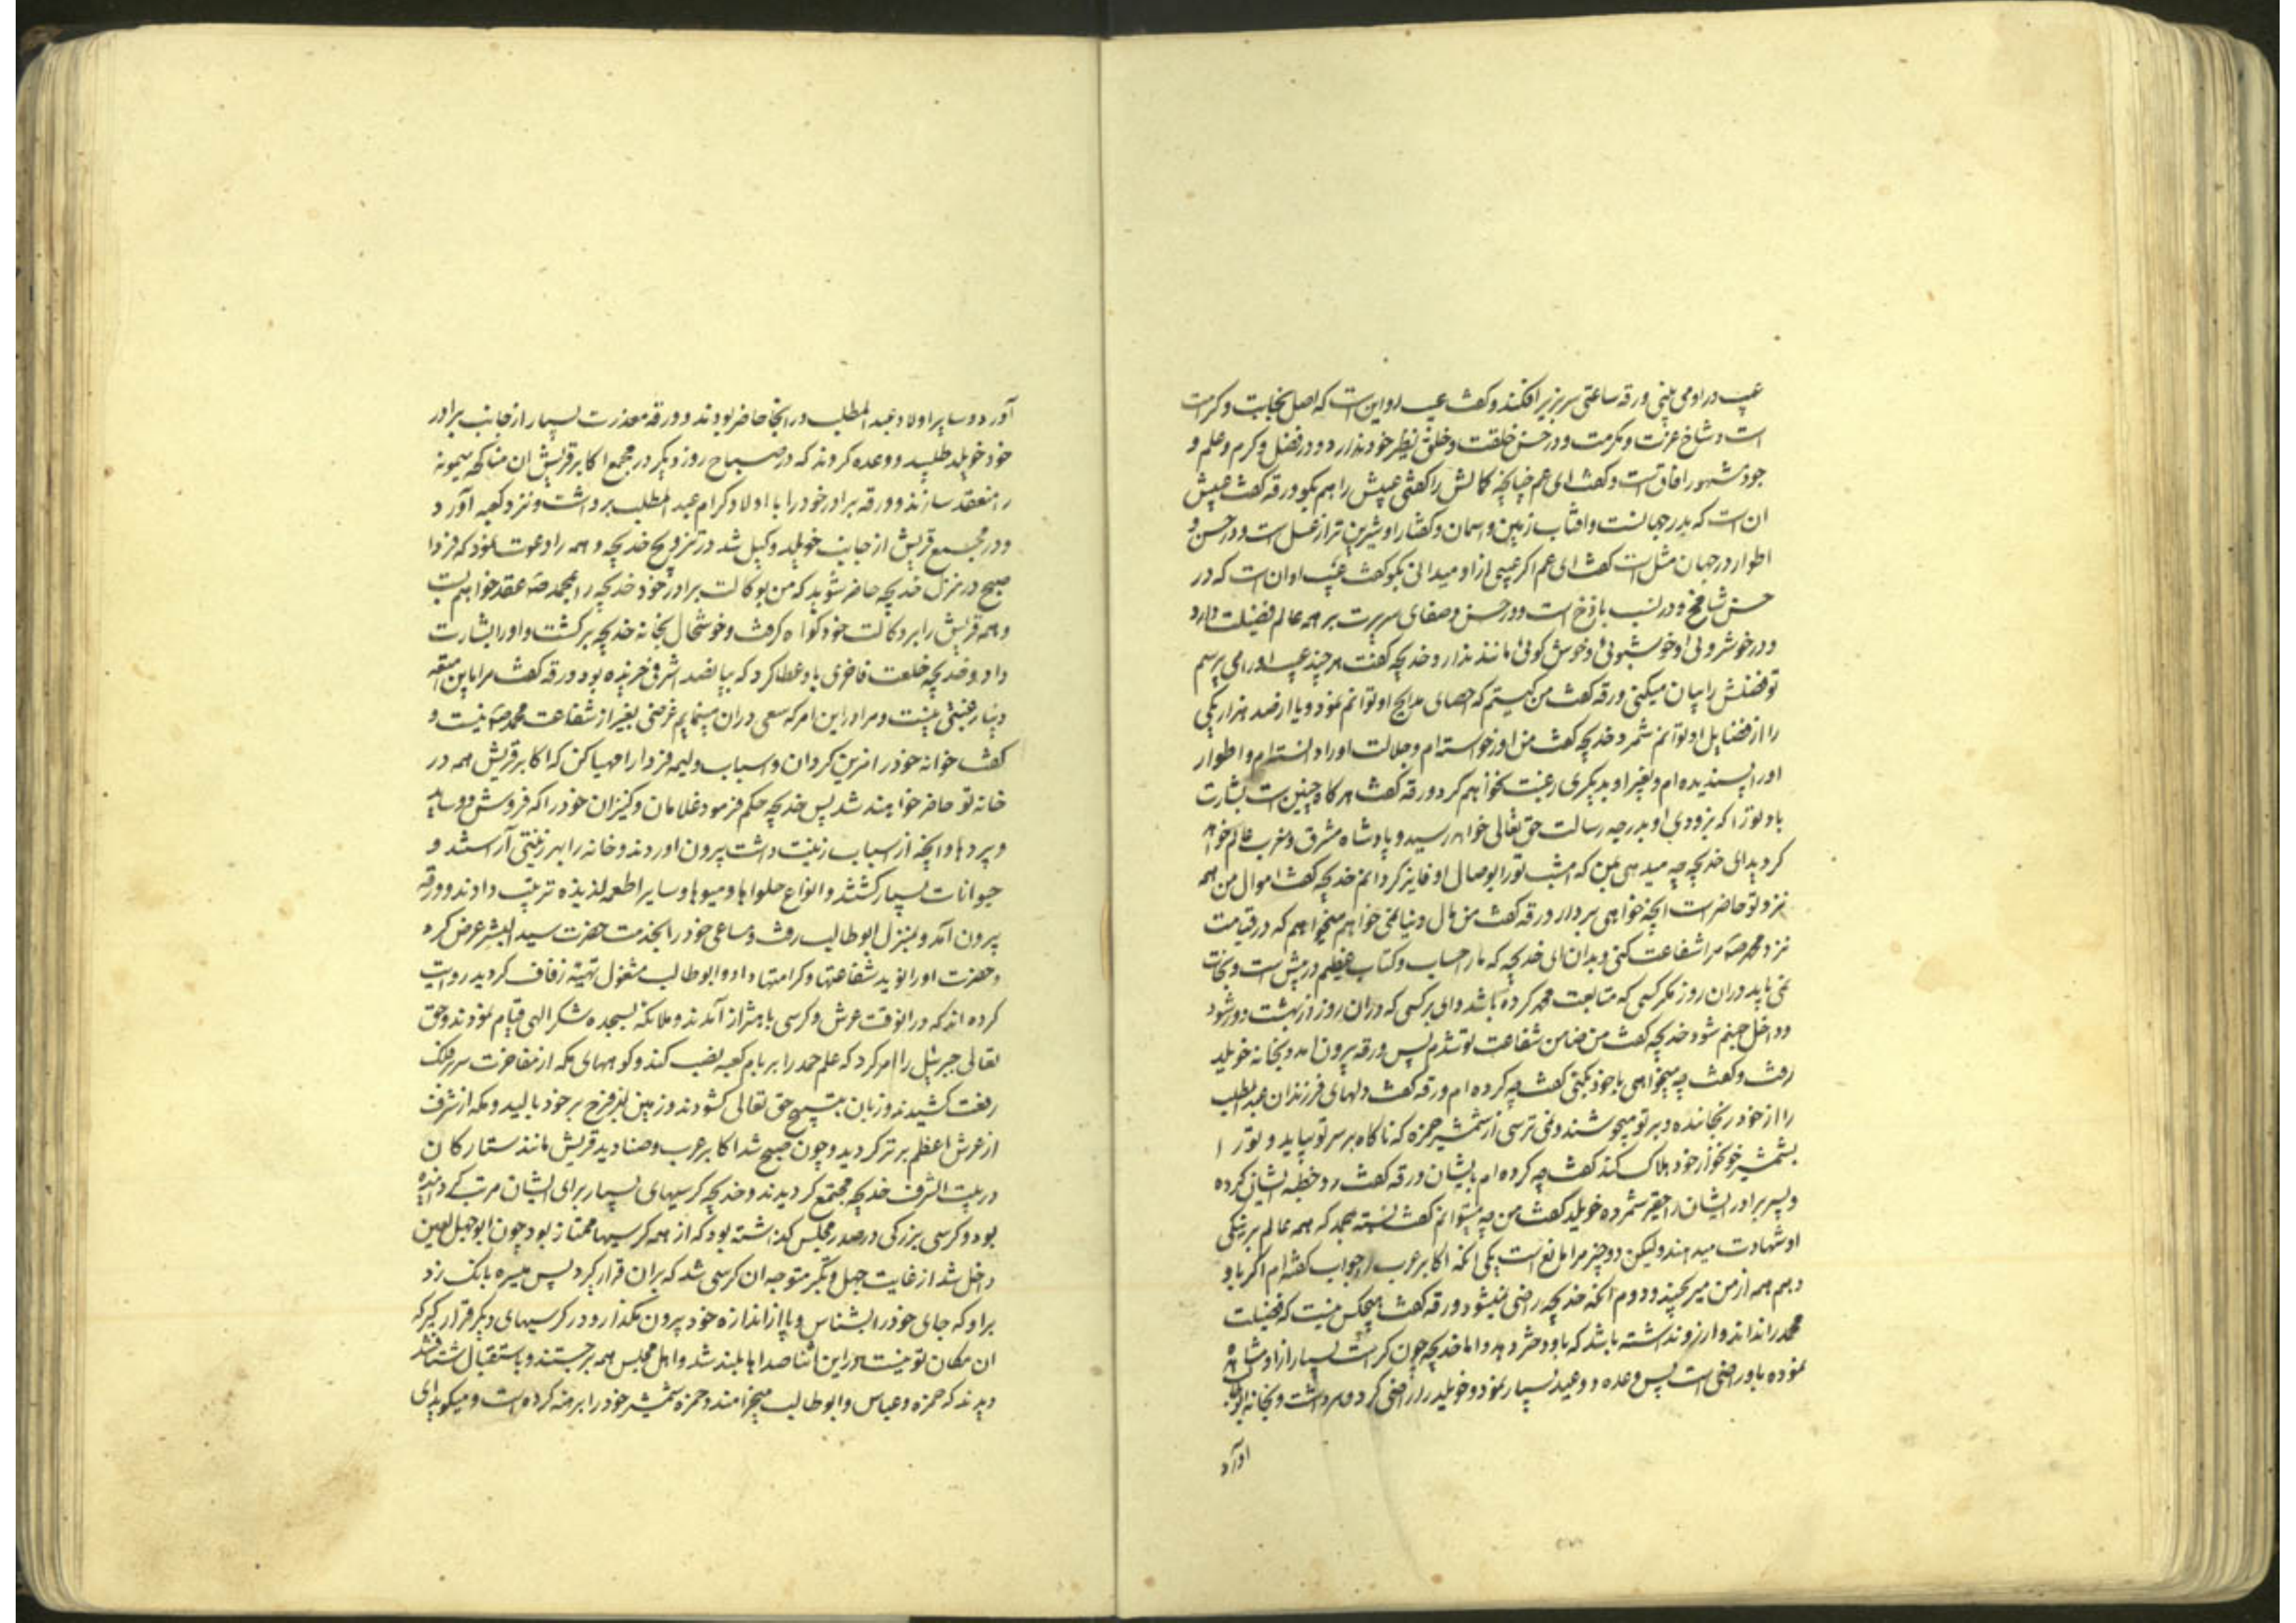 عیب در او می بینی ورقه ساعتی سر بزیر افکند و گفت عیب او این است که اصل نجابت و کرامت
است و شاخ عزت و مکرمت و در حسن خلقت و خلق نظیر خود ندارد و در فضل و کرم و علم و
جود مشهور آفاق است و گفت ای عم چنانچه کمالش را گفتی عیبش را هم بگو ورقه گفت عیبش
آن است که بدر جهانست و آفتاب زمین و اسمان و گفتار او شیرین تر از عسل است و در حسن و
اطوار در جهان مثل است گفت ای عم اگر عیبی از او میدانی بگو گفت عیب او ان است که در
حسن شامخ و در نسب باذخ است و در حسن و صفای سریرت بر همه عالم فضیلت دارد
و در خوشروئی و خوشبوئی و خوش گوئی مانند ندارد خدیجه گفت هر چند عیب او را می پرسم
تو فضلش را بیان میکنی ورقه گفت من کیستم که احصای مدایح او توانم نمود و یا از صد هزار یکی
را از فضایل او توانم شمرد خدیجه گفت من او را خواسته ام و جلالت او را دانسته ام و اطوار
او را پسندیده ام و بغیر او بدیگری رغبت نخواهم کرد ورقه گفت هرگاه چنین است بشارت
باد تو را که بزودی او بدرجه رسالت حق تعالی خواهد رسید و پادشاه مشرق و مغرب عالم خواهد
گردید ای خدیجه چه میدهی بمن که امشب تو را بوصال او فایز گردانم خدیجه گفت اموال من همه
نزد تو حاضر است انچه خواهی بردار ورقه گفت من مال دنیا نمی خواهم میخواهم که در قیامت
نزد محمد صه مرا شفاعت کنی و بدان ای خدیجه که ما را حساب و کتاب عظیم در پیش است و نجات
نمی یابد در ان روز مگر کسی که متابعت محمد کرده باشد وای بر کسی که در ان روز از بهشت دور شود
و داخل جهنم شود خدیجه گفت من ضامن شفاعت تو شدم پس ورقه بیرون امد و بخانه خویلد
رفت و گفت چه میخواهی با خود بکنی گفت چه کرده ام ورقه گفت دلهای فرزندان عبد المطلب
را از خود رنجانده و بر تو میجوشند و نمی ترسی از شمشیر حمزه که ناگاه بر سر تو بیاید و تو را
بشمشیر خونخوار خود هلاک کند گفت چه کرده ام بایشان ورقه گفت رد خطبه ایشان کرده
و پسر برادر ایشان را حقیر شمرده خویلد گفت من چه میتوانم گفت نسبت بمحمد که همه عالم بر نیکی
او شهادت میدهند ولیکن دو چیز مرا مانع است یکی انکه اکابر عرب را جواب گفته ام اگر باو
دهم همه از من میرنجند و دوم انکه خدیجه راضی نمیشود ورقه گفت هیچکس نیست که فضیلت
محمد را نداند و ارزو نداشته باشد که باو دختر دهد و اما خدیجه چون کرامت بسیار از او مشاهده
نموده باو راضی است پس وعده و وعید بسیار نمود و خویلد را راضی کرد و برداشت و بخانه ابو طالب
آورد
آورد و سایر اولاد عبد المطلب در انجا حاضر بودند و ورقه معذرت بسیار از جانب برادر
خود خویلد طلبید و وعده کردند که در صباح روز دیگر در مجمع اکابر قریش ان مناکحه میمونه
را منعقد سازند و ورقه برادر خود را با اولاد کرام عبد المطلب برداشت و نزد کعبه آورد
و در مجمع قریش از جانب خویلد وکیل شد در تزویج خدیجه و همه را دعوت نمود که فردا
صبح در منزل خدیجه حاضر شوید که من بوکالت برادر خود خدیجه را بمحمد صه عقد خواهم بست
و همه قریش را بر وکالت خود گواه گرفت و خوشحال بخانه خدیجه برگشت و او را بشارت
داد و خدیجه خلعت فاخری باو عطا کرد که بپانصد اشرفی خریده بود ورقه گفت مرا باین متعه
دنیا رغبتی نیست و مرا در این امر که سعی در ان مینمایم غرضی بغیر از شفاعت محمد صه نیست و
گفت خوانه خود را مزین گردان و اسباب ولیمه فردا را مهیا کن که اکابر قریش همه در
خانه تو حاضر خواهند شد پس خدیجه حکم فرمود غلامان و کنیزان خود را که فروش و وساید
و پردها و انچه از اسباب زینت داشت بیرون اوردند و خانه را بهر زینتی آراستند و
حیوانات بسیار کشتند و انواع حلواها و میوها و سایر اطعمه لذیذه ترتیب دادند و ورقه
بیرون آمد و بمنزل ابو طالب رفت و مساعی خود را بخدمت حضرت سید البشر عرض کرد
و حضرت او را نوید شفاعتها و کرامتها داد و ابو طالب مشغول تهیه زفاف گردید روایت
کرده اند که در انوقت عرش و کرسی باهتزاز آمدند و ملائکه بسجده شکر الهی قیام نمودند و حق
تعالی جبرئیل را امر کرد که علم حمد را بر بام کعبه نصب کند و کوههای مکه از مفاخرت سر بفلک
رفعت کشیدند و زبان بتسبیح حق تعالی گشودند و زمین از فرح بر خود بالید و مکه از شرف
از عرش اعظم برتر گردید و چون صبح شد اکابر عرب و صنادید قریش مانند ستارگان
در بیت الشرف خدیجه مجتمع گردیدند و خدیجه کرسیهای بسیار برای ایشان مرتب گردانیده
بود و کرسی بزرگی در صدر مجلس گذاشته بود که از همه کرسیها ممتاز بود چون ابو جهل لعین
داخل شد از غایت جهل و تکبر متوجه ان کرسی شد که بران قرار گیرد پس میسره بانک زد
بر او که جای خود را بشناس و پا از اندازه خود بیرون مگذار و در کرسیهای دیگر قرار گیر که
ان مکان تو نیست در این اثنا صداها بلند شد و اهل مجلس همه برجستند و باستقبال شتافتند
دیدند که حمزه و عباس و ابو طالب میخرامند و حمزه شمشیر خود را برهنه کرده است و میگوید ای